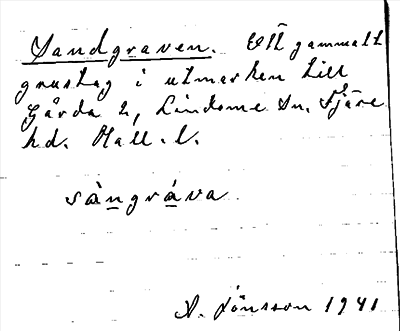 Sandgraven. Ett gammalt
grustag i utmarken till
Gårda 2, Lindome Sn. Fjäre
hd. Hall. l.
sàngráva
A. Jönsson 1941